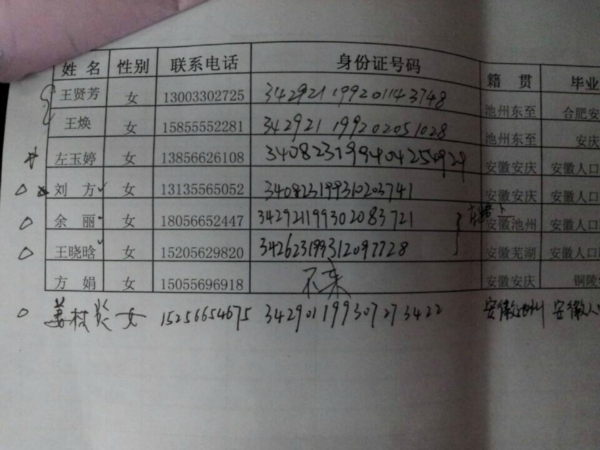 姓名 性别 联系电话 身份证号码 籍贯 毕业
王贤芳 女 13003302725 342921199201143748 池州东至 合肥安
王焕 女 15855552281 342921199202051028 池州东至 安庆
左玉婷 女 13856626108 340823199404254924 安徽安庆 安徽人口
刘方 女 13135565052 340823199310203741 安徽安庆 安徽人口
余丽 女 18056652447 342921199302083721 安徽池州 安徽人口
王晓晗 女 15205629820 342623199312097728 安徽芜湖 安徽人口
方娟 女 15055696918 不来 安徽安庆 铜陵
姜 女 15256654675 342901199307273422 安徽池州 安徽人